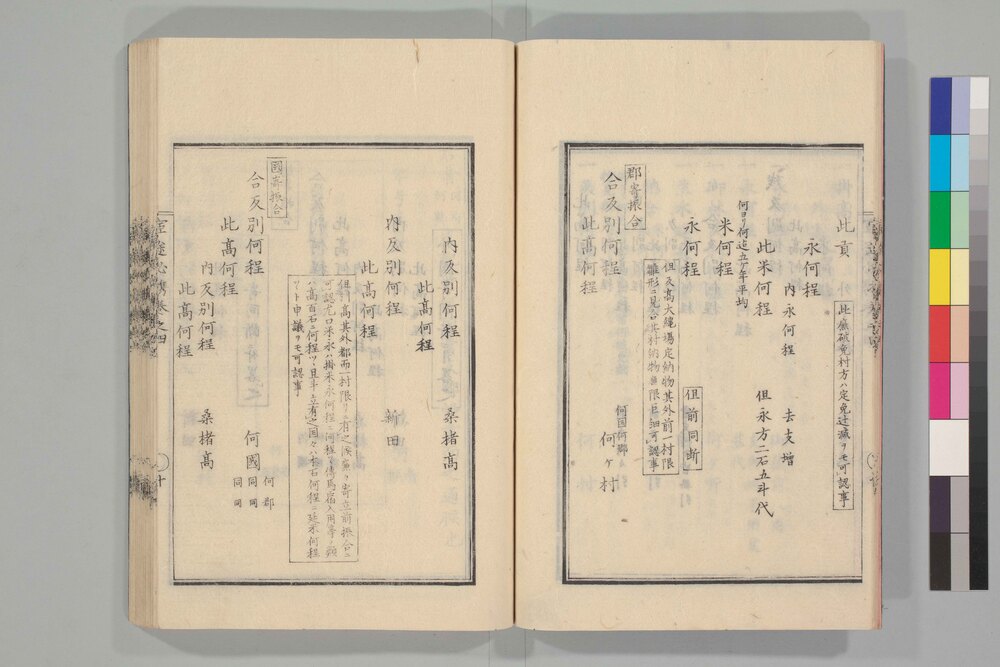 此貢
此廉破免村方ハ定免辻減ヲモ可認事
永何程
内永何程　去支増
此米何程　但永方二石五斗代
何ヨリ何迄五ケ年平均
米何程
永何程　但前同断
但反高大縄場定納物其外前一村限
雛形ニ見合其村納物無限巨細可認事
郡寄振合
合反別何程　何国何郷
何ヶ村
此高何程
内反別何程　桑楮高
此高何程
内反別何程　新田
此高何程
但高其外都而一村限リニ有之候廉ハ寄立前振合ニ
可認尤口米永ハ掛米永何程ニ何程ト傳馬宿入用等ノ類
ハ高百石ニ何程ツヽ且斗立有之国々ハ本石何程ニ延米何程
ツヽト申議ヲモ可認事
國寄振合
合反別何程　何國　何郡
同　同
同　同
此高何程
内反別何程　桑楮高
此高何程
卷之四
十